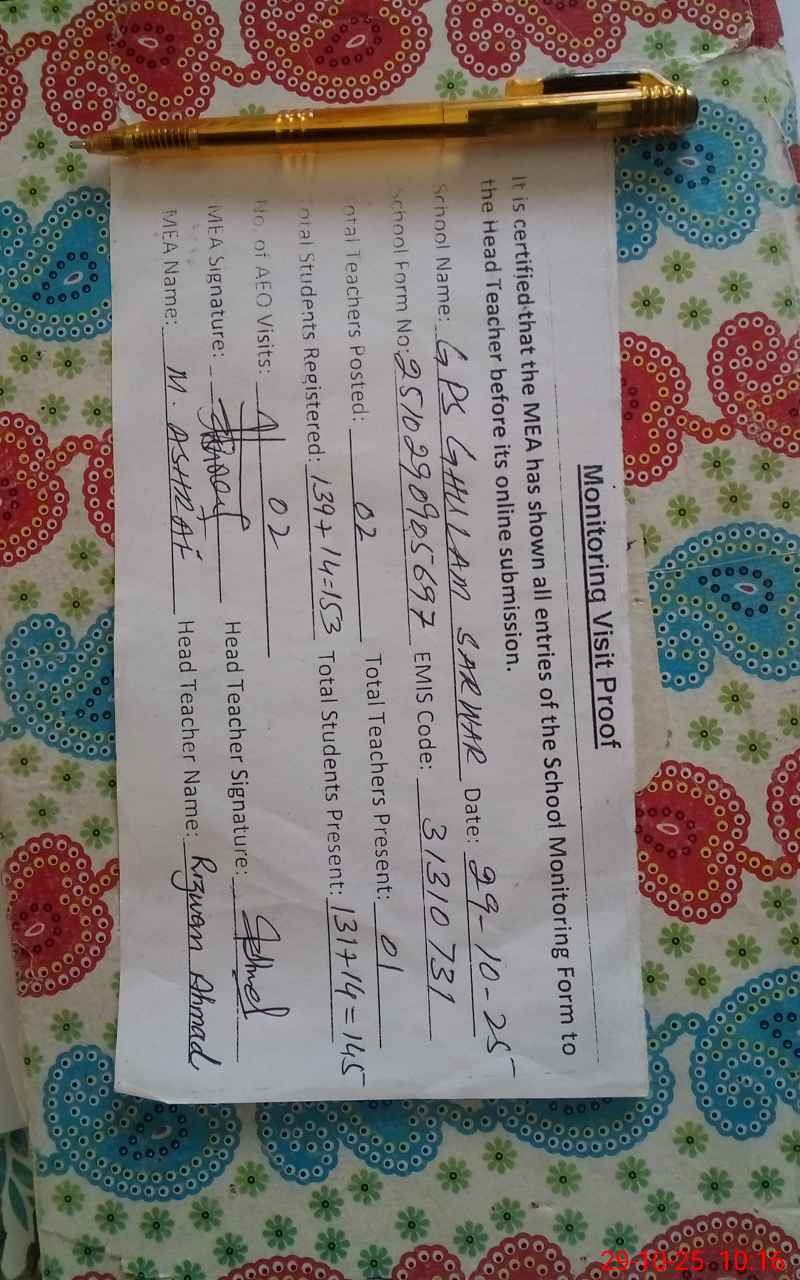 Monitoring Visit Proof
It is certified that the MEA has shown all entries of the School Monitoring Form to
the Head Teacher before its online submission.
School Name: GPS GHULAM SARWAR Date: 29-10-25
School Form No: 2510290905697 EMIS Code: 31310731
Total Teachers Posted: 02 Total Teachers Present: 01
Total Students Registered: 139+14=153 Total Students Present: 131+14=145
No. of AEO Visits: 02
MEA Signature: Head Teacher Signature:
MEA Name: M. ASHRAF Head Teacher Name: Rizwan Ahmad
29-10-25 10:16